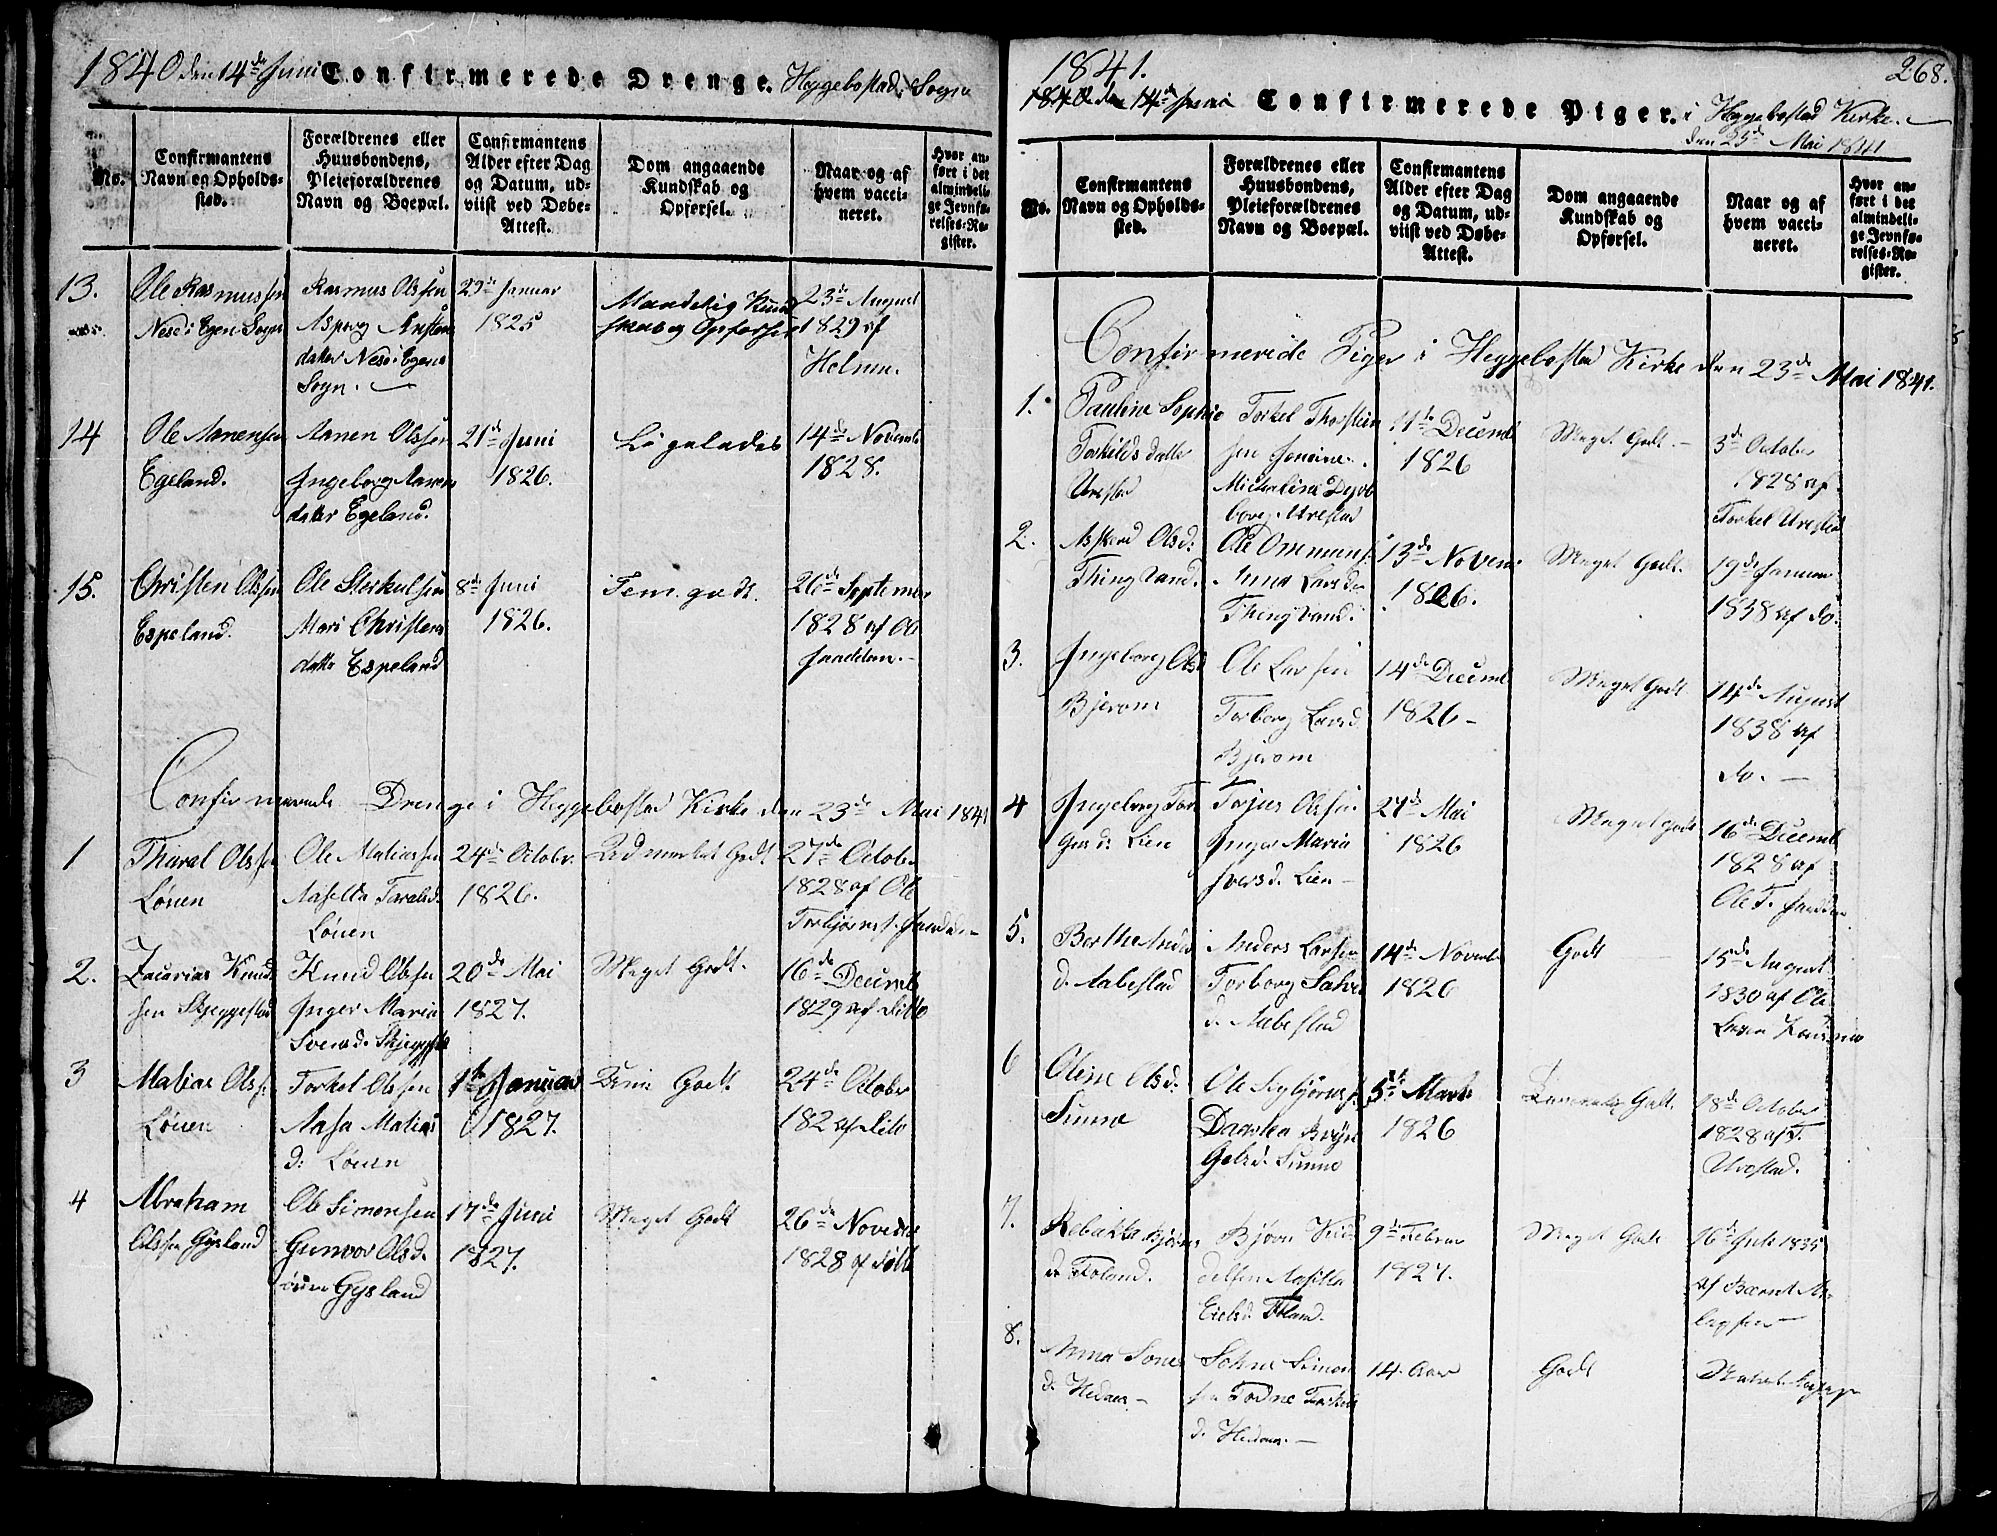 1840 den 14de Juni Confirmerede Drenge. Heggebostad Sogn
No.
Confirmantens
Navn og Opholds-
sted.
Forældrenes eller
Huusbondens,
Pleieforældrenes
Navn og Boepæl.
Confirmantens
Alder efter Dag
og Datum, ud-
viist ved Døbe-
Attest.
Dom angaaende
Kundskab og
Opførsel.
Naar og af
hvem vacci-
neret.
Hvor an-
ført i det
almindeli-
ge Jevnfø-
relses-Re-
gister.
13.
Ole Rasmussen
Nese i Egen Sogn
Rasmus Olssen
Asperg Ansten
datter Nese i Egens
Sogn.
29de Januar
1825
Maadelig Kund
skab og Opførsel
23de August
1829 af
Holmen.
14
Ole Aanensen
Egeland.
Aanen Olssen
Ingeborg Aanen
datter Egeland.
21de Juni
1826.
Ligeledes
14de Novemb
1828.
15.
Christen Olssen
Espeland.
Ole Sterkelsen
Mari Christens
datter Espeland
8de Juni
1826.
Tem. godt.
26de Septemer
1828 af Ole
Confirmerede Drenge i Heggebostad Kirke den 23de Mai 1841
1
Tharal Olssen
Løuen
Ole Matiassen
Aaselta Taralsd.
Løuen
24de Octobr.
1826.
Udmerket Godt
27de Octobr
1828 af Ole
Torbjørns.
2.
Zacarias Knud
sen Skjeggestad
Knud Olssen
Inger Maria
Svensd. Skjeggestad
20de Mai
1827.
Meget Godt.
16de Decemb
1829 af ditto
3
Matias Olss.
Løuen
Torkel Olssen
Aasa Matias
d. Løuen
1te Januar
1827.
Godt.
24de Octobr
182 af ditto
4
Abraham
Olssen Gysland
Ole Simonsen
Gunvor Olsd.
Gysland
17de Juni
1827.
Meget Godt
26de Novebr
1828 af ditt
1841.
268.
1840 den 14de Juni Confirmerede Piger. i Heggebostad Kirke.
den 23de Mai 1841
No.
Confirmantens
Navn og Opholds-
sted.
Forældrenes eller
Huusbondens,
Pleieforældrenes
Navn og Boepæl.
Confirmantens
Alder efter Dag
og Datum, ud-
viist ved Døbe-
Attest.
Dom angaaende
Kundskab og
Opførsel.
Naar og af
hvem vacci-
neret.
Hvor an-
ført i det
almindeli-
ge Jevnfø-
relses-Re-
gister.
Confirmerede Piger i Heggebostad Kirke den 23de Mai 1841.
1.
Pauline Sophie
Torkilds datter
Urestad
Torkel Thorstein
sen
Urestad
11te Decemb
1826
Meget Godt.
3de October
1828 af
Torkel Urestad
2.
Olsd.
Thingvand.
Ole Ommuns.
Anna Larsda
Thingvand.
13de Novem
1826.
Meget Godt.
19de Januar
1838 af do.
3.
Ingeborg Olsd
Bjerom
Ole Larsen
Torborg Larsd
Bjerom
14de Decemb
1826
Meget Godt
14de August
1838 af
do.
4
Ingeborg Ter
Gesd. Lien
Terjus Olssen
Inger Maria
Iversd. Lien
27de Mai
1826
Meget Godt
16de Decemb
1828 af
Ole T.
5.
Berthe Anders
d. Aabestad
Anders Larsen
Torborg Salve
d. Aabestad
14de Novemb
1826
Godt
15de August
1830 af Ole
Larsen
6
Oline Olsd.
Sinne
Ole Seybjørns.
Daarthea Bryn
Gelsd. Sinne
5te Marts
1826
Godt.
18de October
1828 af T.
Urestad.
7.
Rebakka Bjørns
d. Foland.
Bjørn
Aasilla
Eielsd. Foland.
9de Februar
1827.
Meget Godt
26de Juli 1835
af Berent
8.
Anna Sone
d. Hedner
Sohne Simon
sen Todne Torkels
d. Hedner.
14. Aar
Godt